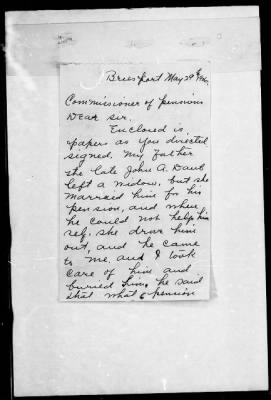 Breesport May 29th
Commissioner of pensions
Dear Sir.
Enclosed is
papers as you directed
signed. My Father
the late John A. Daub
left a widow, but she
married him for his
pension, and when
he could not help him
self. she drove him
out, and he came
to me, and I took
care of him and
buried him, he said
that what pension